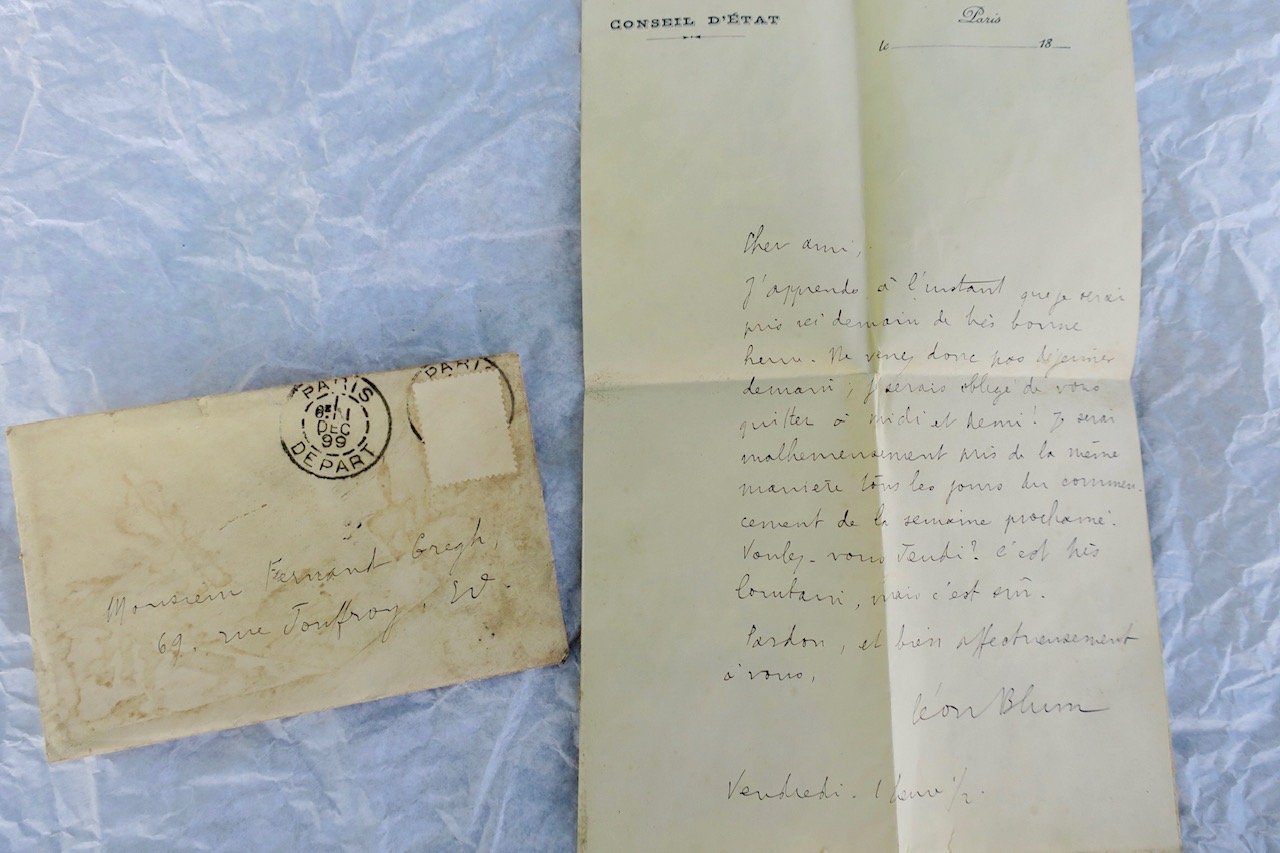 CONSEIL D'ÉTAT
Paris
le 18
Cher ami,
J'apprends à l'instant que je serai
pris ici demain de très bonne
heure. Ne venez donc pas déjeuner
demain ; je serais obligé de vous
quitter à midi et demi ! Je serai
malheureusement pris de la même
manière tous les jours du commen-
cement de la semaine prochaine.
Voulez-vous Jeudi ? C'est très
lointain, mais c'est sûr.
Pardon, et bien affectueusement
à vous,
Léon Blum
Vendredi. 1 heure 1/2.
PARIS
1
DEC
99
DEPART
PARIS
Monsieur Fernand Gregh,
69, rue Jouffroy, EV.